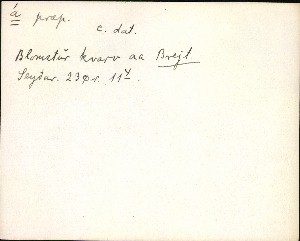 á præp.
c. dat.
Blomstür kvarv aa Brejt
Seyðar. 23 or. 11